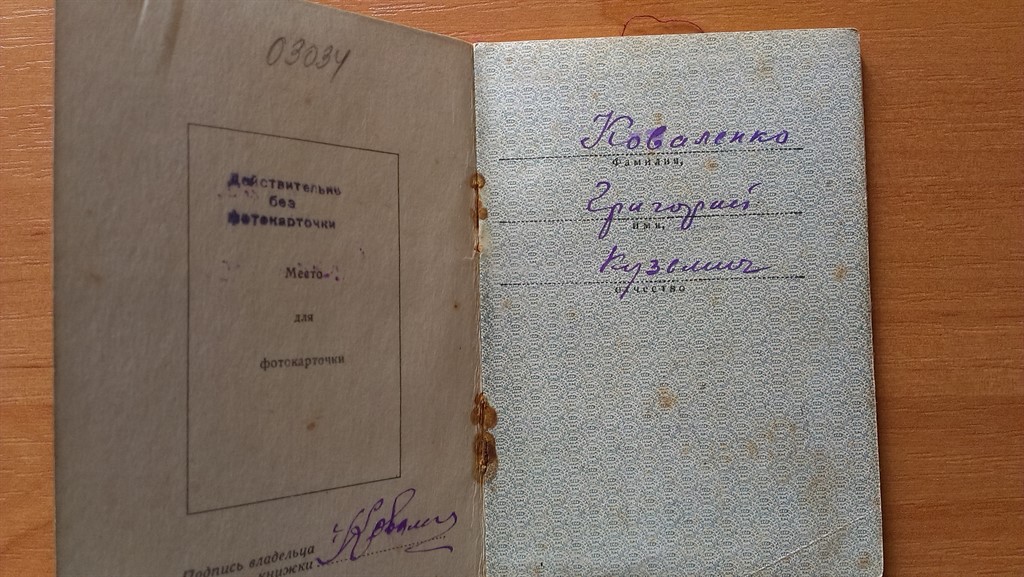 03034
Действительно
без
фотокарточки
Место
для
фотокарточки
Подпись владельца
книжки
Коваленко
Фамилия,
Григорий
имя,
Кузьмич
отчество